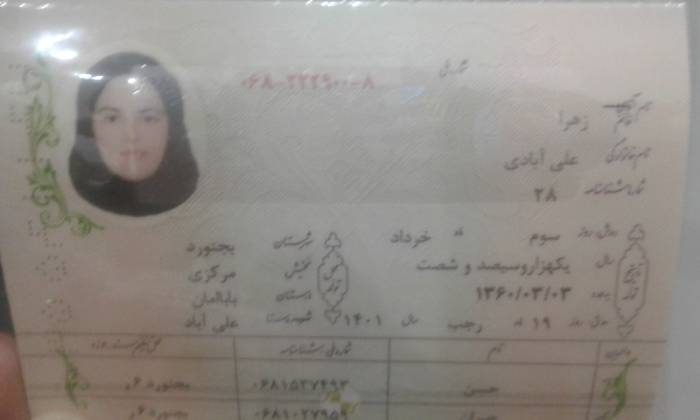 شماره ملی ۰۶۸-۲۲۲۹۰۰-۸
نام زهرا
نام خانوادگی علی آبادی
شماره شناسنامه ۲۸
روز سوم ماه خرداد شهرستان بجنورد
سال یکهزار و سیصد و شصت بخش مرکزی
۱۳۶۰/۰۳/۰۳ دهستان باباامان
روز ۱۹ ماه رجب سال ۱۴۰۱ علی آباد
نام شماره شناسنامه
حسن ۰۶۸۱۵۲۷۴۹۲ بجنورد ۶
۰۶۸۱۰۲۷۹۵۹ بجنورد ۶